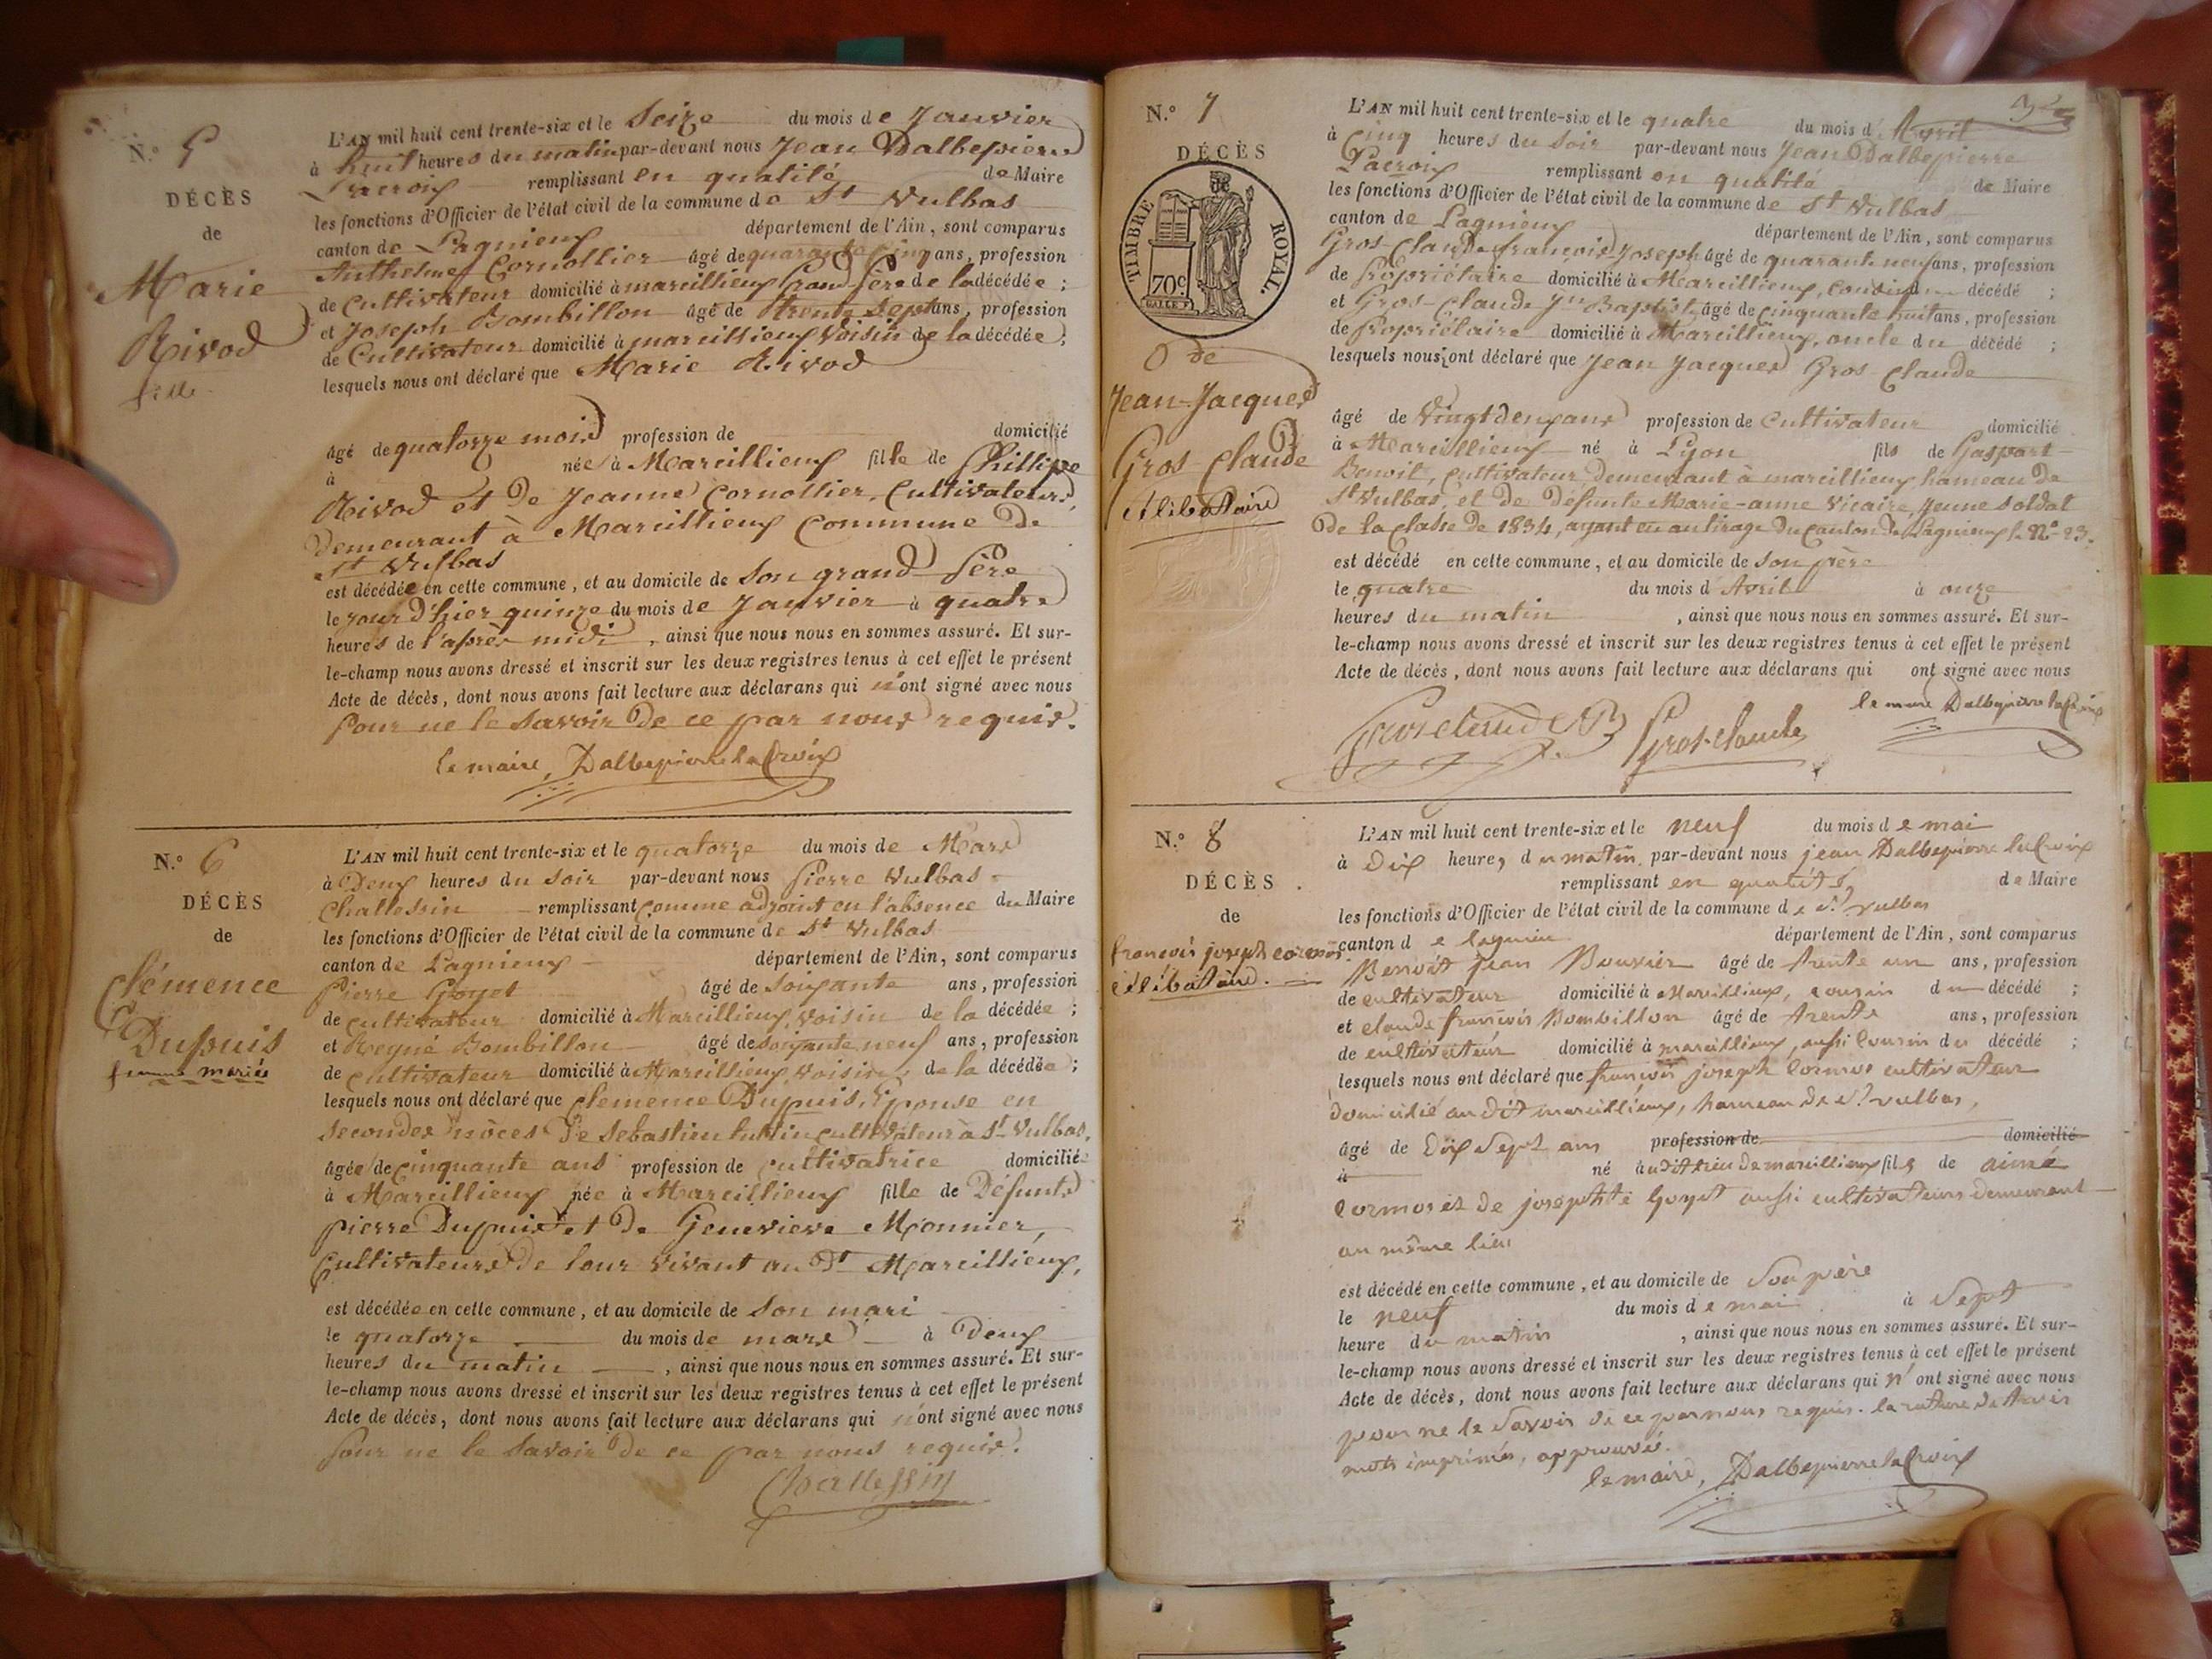 N.º 5
DÉCÈS
de
Marie
Rivod
fille
L'AN mil huit cent trente-six et le Seize du mois de Janvier
à huit heures du matin par-devant nous Jean Dalbepierre
Lacroix remplissant en qualité de Maire
les fonctions d'Officier de l'état civil de la commune de St Vulbas
canton de Lagnieux département de l'Ain, sont comparus
Anthelme Cornollier âgé de quarante cinq ans, profession
de Cultivateur domicilié à marcillieux Grand Père de la décédée ;
et Joseph Bombillon âgé de trente sept ans, profession
de Cultivateur domicilié à marcillieux Voisin de la décédée ;
lesquels nous ont déclaré que Marie Rivod
âgé de quatorze mois profession de domicilié
à née à Marcillieux fille de Phillipe
Rivod et de Jeanne Cornollier, Cultivateurs,
demeurant à Marcillieux Commune de
St Vulbas
est décédée en cette commune, et au domicile de Son grand Père
le jour d'hier quinze du mois de Janvier à quatre
heures de l'après midi, ainsi que nous nous en sommes assuré. Et sur-
le-champ nous avons dressé et inscrit sur les deux registres tenus à cet effet le présent
Acte de décès, dont nous avons fait lecture aux déclarans qui n'ont signé avec nous
Pour ne le Savoir de ce par nous requis.
le maire, Dalbepierre la Croix
N.º 6
DÉCÈS
de
Clémence
Dupuis
femme mariée
L'AN mil huit cent trente-six et le quatorze du mois de Mars
à Deux heures du Soir par-devant nous Pierre Vulbas
Challessin remplissant comme adjoint en l'absence du Maire
les fonctions d'Officier de l'état civil de la commune de St Vulbas
canton de Lagnieux département de l'Ain, sont comparus
Pierre Goyet âgé de Soixante ans, profession
de cultivateur domicilié à Marcillieux, voisin de la décédée ;
et Regné Bombillon âgé de soixante neuf ans, profession
de cultivateur domicilié à Marcillieux, voisin, de la décédée ;
lesquels nous ont déclaré que clemence Dupuis, Epouse en
secondes nôces de Sebastien cultivateur à St Vulbas,
âgée de cinquante ans profession de cultivatrice domiciliée
à Marcillieux née à Marcillieux fille de Défunts
pierre Dupuis et de Genevieve Monnier,
Cultivateurs de leur vivant au dt Marcillieux,
est décédée en cette commune, et au domicile de Son mari
le quatorze du mois de mars à Deux
heures du matin, ainsi que nous nous en sommes assuré. Et sur-
le-champ nous avons dressé et inscrit sur les deux registres tenus à cet effet le présent
Acte de décès, dont nous avons fait lecture aux déclarans qui n'ont signé avec nous
Pour ne le Savoir de ce par nous requis.
Challessin
N.º 7
DÉCÈS
TIMBRE ROYAL.
70c.
de
Jean-Jacques
Gros-Claude
Célibataire
L'AN mil huit cent trente-six et le quatre du mois d'Avril
à Cinq heures du soir par-devant nous Jean Dalbepierre
Lacroix remplissant en qualité de Maire
les fonctions d'Officier de l'état civil de la commune de St Vulbas
canton de Lagnieux département de l'Ain, sont comparus
Gros-Claude françois Joseph âgé de quarante neuf ans, profession
de Propriétaire domicilié à Marcillieux, Cousin du décédé ;
et Gros-Claude Jn Baptiste âgé de cinquante huit ans, profession
de Propriétaire domicilié à Marcillieux, oncle du décédé ;
lesquels nous ont déclaré que Jean Jacques Gros Claude
âgé de Vingt deux ans profession de Cultivateur domicilié
à Marcillieux né à Lyon fils de Gaspart-
Benoit, Cultivateur demeurant à marcillieux hameau de
St Vulbas, et de défunte Marie-anne Vicaire, Jeune soldat
de la classe de 1834, ayant eu au tirage du Canton de Lagnieux le No 23.
est décédé en cette commune, et au domicile de Son père
le quatre du mois d'Avril à onze
heures du matin, ainsi que nous nous en sommes assuré. Et sur-
le-champ nous avons dressé et inscrit sur les deux registres tenus à cet effet le présent
Acte de décès, dont nous avons fait lecture aux déclarans qui ont signé avec nous
le maire Dalbepierre la Croix
Grosclaude Gros-claude
N.º 8
DÉCÈS.
de
francois joseph cormos
célibataire.
L'AN mil huit cent trente-six et le neuf du mois de mai
à Dix heures du matin par-devant nous jean Dalbepierre la Croix
remplissant en qualité, de Maire
les fonctions d'Officier de l'état civil de la commune de St vulbas
canton de lagnieu département de l'Ain, sont comparus
Benoit jean Bouvier âgé de trente un ans, profession
de cultivateur domicilié à Marcillieux, cousin du décédé ;
et claude françois Bombillon âgé de trente ans, profession
de cultivateur domicilié à marcillieux, aussi Cousin du décédé ;
lesquels nous ont déclaré que françois joseph Cormos cultivateur
domicilié au dit marcillieux, hameau de St vulbas,
âgé de Dix Sept ans profession de domicilié
à né audit lieu de marcillieux fils de aimé
Cormos et de josephte Goyet aussi cultivateurs demeurant
au même lieu
est décédé en cette commune, et au domicile de Son père
le neuf du mois de mai à Sept
heure du matin, ainsi que nous nous en sommes assuré. Et sur-
le-champ nous avons dressé et inscrit sur les deux registres tenus à cet effet le présent
Acte de décès, dont nous avons fait lecture aux déclarans qui n'ont signé avec nous
pour ne le Savoir de ce par nous requis. la rature de trois
mots imprimés, approuvée.
le maire, Dalbepierre la Croix